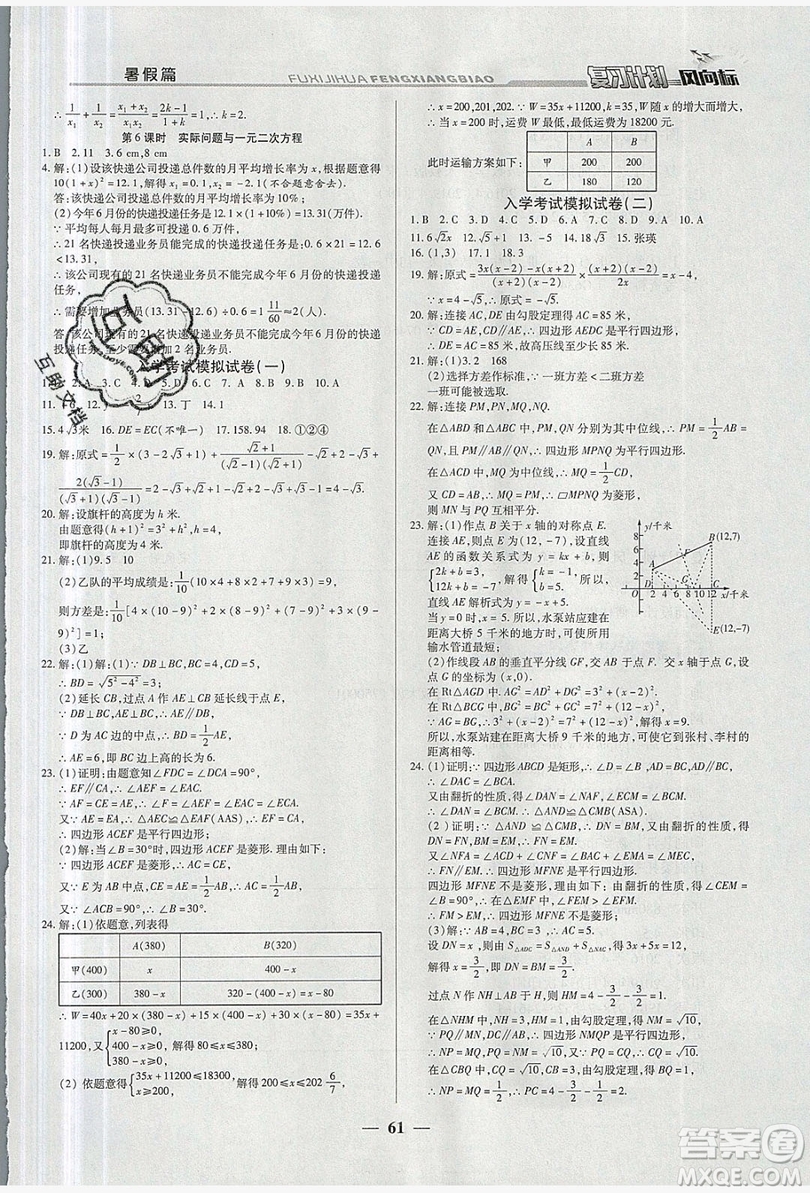 暑假篇
FUXIJIHUA FENGXIANGBIAO
复习计划 风向标
∴1/x₁+1/x₂=(x₁+x₂)/(x₁x₂)=(2k-1)/k²=1,∴k=2.
第6课时 实际问题与一元二次方程
1.B 2.11 3.6 cm,8 cm
4.解:(1)设该快递公司投递总件数的月平均增长率为x,根据题意得
10(1+x)²=12.1,解得x₁=10%,x₂=-210%(不合题意舍去)
答:该快递公司投递总件数的月平均增长率为10%.
(2)今年6月份的快递投递任务是12.1×(1+10%)=13.31(万件).
∵平均每人每月最多可投递0.6万件,
∴21名快递投递业务员能完成的快递投递任务是:0.6×21=12.6
<13.31,
∴该公司现有的21名快递投递业务员不能完成今年6月份的快递投递
任务,
∴需要增加业务员(13.31-12.6)÷0.6=1 11/60≈2(人).
答:该公司现有的21名快递投递业务员不能完成今年6月份的快递投递
任务,至少需要增加2名业务员.
入学考试模拟试卷(一)
15.4√3米 16.DE=EC(不唯一) 17.158.94 18.①②④
20.解:设旗杆的高度为h米.
由题意得(h+1)²=3²+h²,解得h=4.
即旗杆的高度为4米.
21.(1)9.5 10
(3)乙
22.解:(1)∵DB⊥BC,BC=4,CD=5,
∴BD=√(5²-4²)=3
(2)延长CB,过点A作AE⊥CB延长线于点E,
∵DB⊥BC,AE⊥BC,∴AE∥DB,
∵D为AC边的中点,∴BD=1/2AE,
∴AE=6,即BC边上高的长为6.
23.(1)证明:由题意知∠FDC=∠DCA=90°,
∴EF∥CA,∴∠AEF=∠EAC,
∵AF=CE=AE,∴∠F=∠AEF=∠EAC=∠ECA.
又∵AE=EA,∴△AEC≌△EAF(AAS),∴EF=CA,
∴四边形ACEF是平行四边形;
(2)解:当∠B=30°时,四边形ACEF是菱形.理由如下:
∵∠B=30°,∠ACB=90°,∴AC=1/2AB,
又∵AC=CE,∴四边形ACEF是菱形.
24.解:(1)依题意,列表得
A(380) B(320)
甲(400) x 400-x
乙(300) 380-x 320-(400-x)=x-80
∴W=40x+20(380-x)+15(400-x)+30(x-80)=35x+
11200,又{x-80≥0, 400-x≥0, 380-x≥0 解得80≤x≤380
(2) 依题意得{35x+11200≤18300, x≥200
∴x=200,201,202.∵W=35x+11200,k=35,W随x的增大而增大,
∴当x=200时,运费W最低,最低运费为18200元.
此时运输方案如下:
A B
甲 200 200
乙 180 120
入学考试模拟试卷(二)
1.B 2.C 3.C 4.D 5.A 6.C 7.C 8.D 9.C 10.A
11.6√2x 12.√5+1 13.-5 14.√5 15.张瑛
16.(1,3) 17.11 18.3
19.解:原式=(3x(x-2)-x(x+2))/((x+2)(x-2))×((x+2)(x-2))/2x=x-4,
当x=√2时,原式=√2-4.
20.解:连接AC,DE,由勾股定理得AC=85米,
∵CD=AE,CD∥AE,∴四边形AEDC是平行四边形,
∴DE=AC=85米,故高压线至少85米.
21.解:(1)3.2 168
(2)选择方差作标准,∵一班方差<二班方差
∴一班可能被选取.
22.解:连接PM,PN,MQ,QN,
在△ABD和△ABC中,PM,QN分别为其中位线,
∴PM=1/2AD=QN,PM∥AD∥QN,∴四边形MPNQ为平行四边形.
又CD=AD,∴MQ=PM,∴▱MPNQ为菱形,
则MN与PQ互相平分.
23.解:(1)作点B关于x轴的对称点E.
连接AE,则点E为(12,-7),设直线
AE的函数关系式为y=kx+b,则
{2k+b=3, 12k+b=-7 解得{k=-1, b=5 所以,
直线AE解析式为y=-x+5
当y=0时,x=5,所以,水泵站应建在
距离大桥5千米的地方时,可使所用
输水管道最短.
y/千米
B(12,7)
A
D
C
O
2 3 4 5 6 7 8 9 10 12
x/千米
E(12,-7)
(2)作线段AB的垂直平分线GF,交AB于点F,交x轴于点G,设
点G的坐标为(x,0).
在Rt△AGD中,AG²=AD²+DG²=3²+(x-2)²
在Rt△BCG中,BG²=BC²+GC²=7²+(12-x)²
∵AG=BG,∴3²+(x-2)²=7²+(12-x)²,解得x=9.
所以,水泵站建在距离大桥9千米的地方,可使它到张村、李村的
距离相等.
24.(1)证明:∵四边形ABCD是矩形,∴∠D=∠B=90°,AD=BC,AD∥BC,
∴∠DAC=∠BCA.
由翻折的性质,得∠DAN=∠NAF
∴∠DAN=∠BCM,∴△AND≌△CBM(ASA).
(2)证明:∵△AND≌△CBM,∴DN=BM.
又由翻折的性质,得DN=FN,BM=EM,
∴FN=EM.又∠NFA=∠ACD+∠CNF=∠BAC+∠EMA=∠MEC,
∴FN∥EM,∴四边形MFNE是平行四边形.
四边形MFNE不是菱形,理由如下:由翻折的性质,
得∠CEM=∠B=90°,∴在△EMF中,∠FEM>∠EFM,
∴FM>EM,∴四边形MFNE不是菱形.
(3)解:∵AB=4,BC=3,∴AC=5.
设DN=x,则由S△ADC=S△AND+S△NAC,得3x+5x=12,
解得x=3/2,即DN=BM=3/2.
过点N作NH⊥AB于H,则HM=4-3=1.
在△NHM中,NH=3,HM=1,由勾股定理,得NM=√10,
∵PQ∥MN,DC∥AB,∴四边形NMQP是平行四边形.
∴NP=MQ,PQ=NM=√10,又PQ=CQ,∴CQ=√10,
在△CBQ中,CQ=√10,CB=3,由勾股定理,得BQ=1,
∴NP=MQ=1/2,∴PC=4-3/2-1/2=2.
61
互助文档
答案圈
MXQE.COM